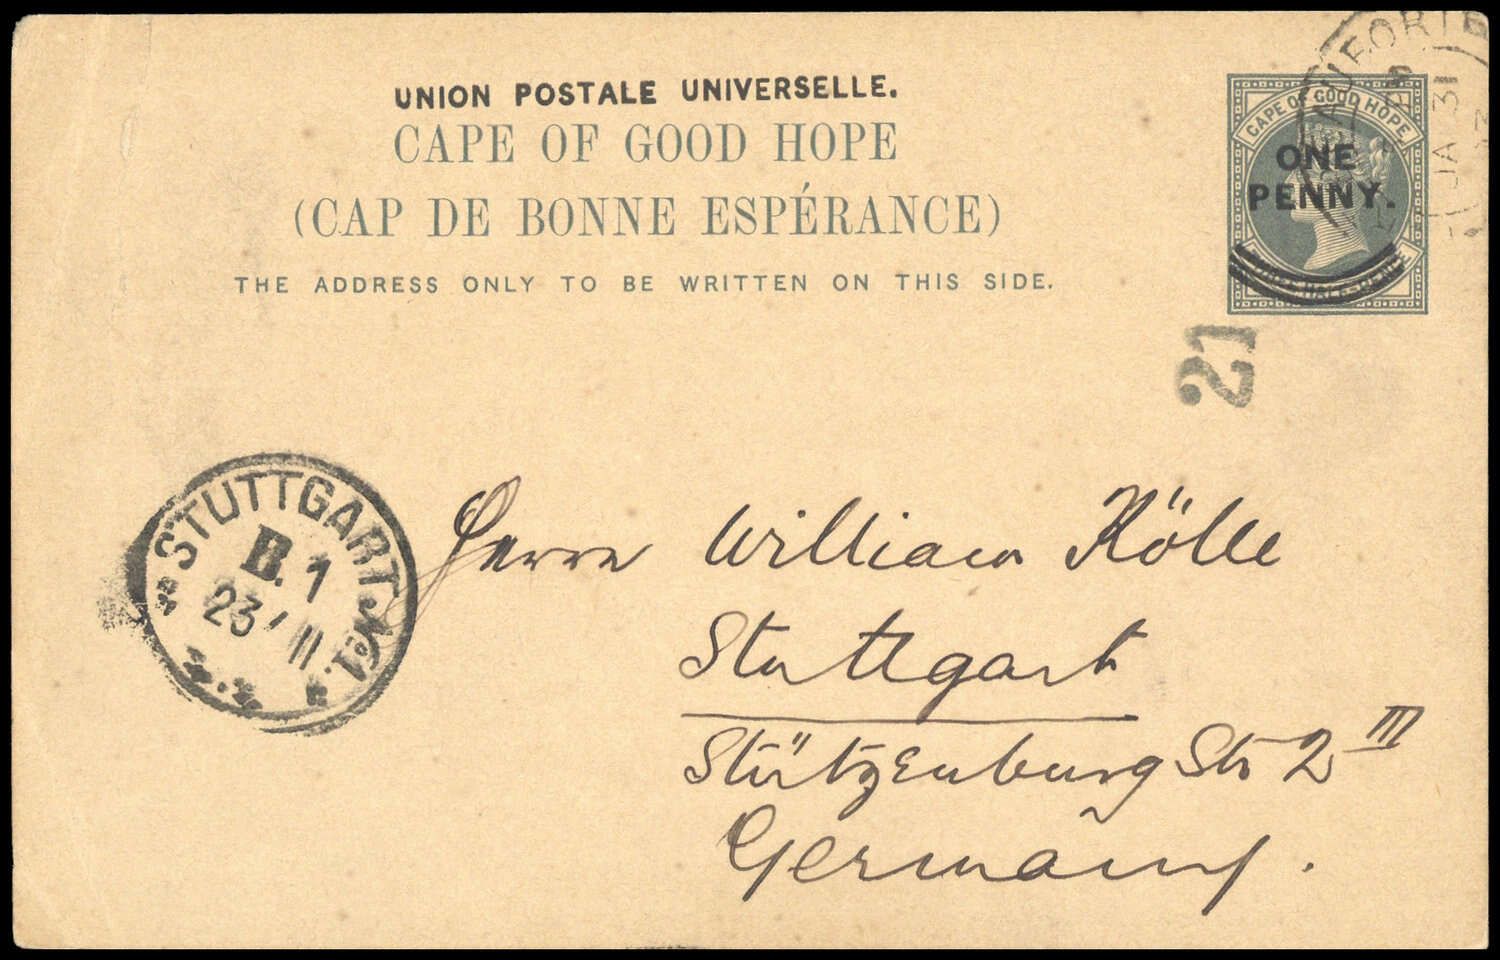 UNION POSTALE UNIVERSELLE.
CAPE OF GOOD HOPE
(CAP DE BONNE ESPÉRANCE)
THE ADDRESS ONLY TO BE WRITTEN ON THIS SIDE.
CAPE OF GOOD HOPE
ONE
PENNY.
HALF-PENCE
JA 31
21
STUTTGART №1.
B. 1
23/II
Herrn William Kölle
Stuttgart
Stützenburg Str 2 III
Germany.